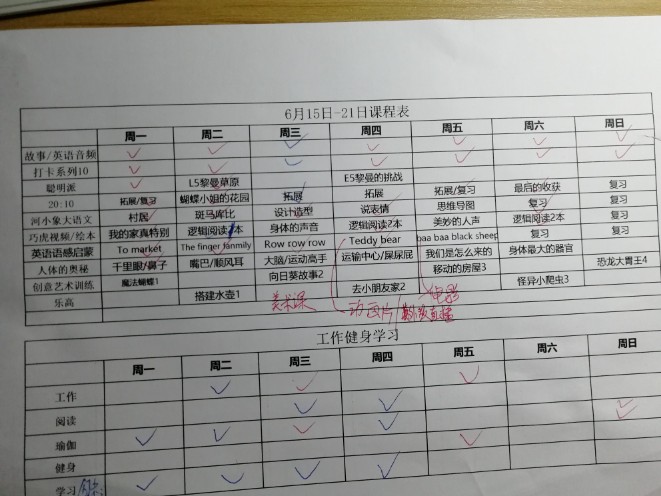 6月15日-21日课程表
周一 周二 周三 周四 周五 周六 周日
故事/英语音频
打卡系列10
聪明派 L5黎曼草原 E5曼的挑战
20:10 拓展/复习 蝴蝶小姐的花园 拓展 拓展 拓展/复习 最后的收获 复习
河小象大语文 村居 斑马库比 设计造型 说表情 思维导图 复习 复习
巧虎视频/绘本 我的家真特别 逻辑阅读2本 身体的声音 逻辑阅读2本 美妙的人声 逻辑阅读2本 复习
英语语感启蒙 To market The finger fanmily Row row row Teddy bear baa baa black sheep 复习 复习
人体的奥秘 千里眼/鼻子 嘴巴/顺风耳 大脑/运动高手 运输中心/屎屎屁 我们是怎么来的 身体最大的器官
创意艺术训练 魔法蝴蝶1 向日葵故事2 移动的房屋3 恐龙大胃王4
乐高 搭建水壶1 去小朋友家2 怪异小爬虫3
美术课 动画片 电影
工作健身学习
周一 周二 周三 周四 周五 周六 周日
工作
阅读
瑜伽
健身
学习